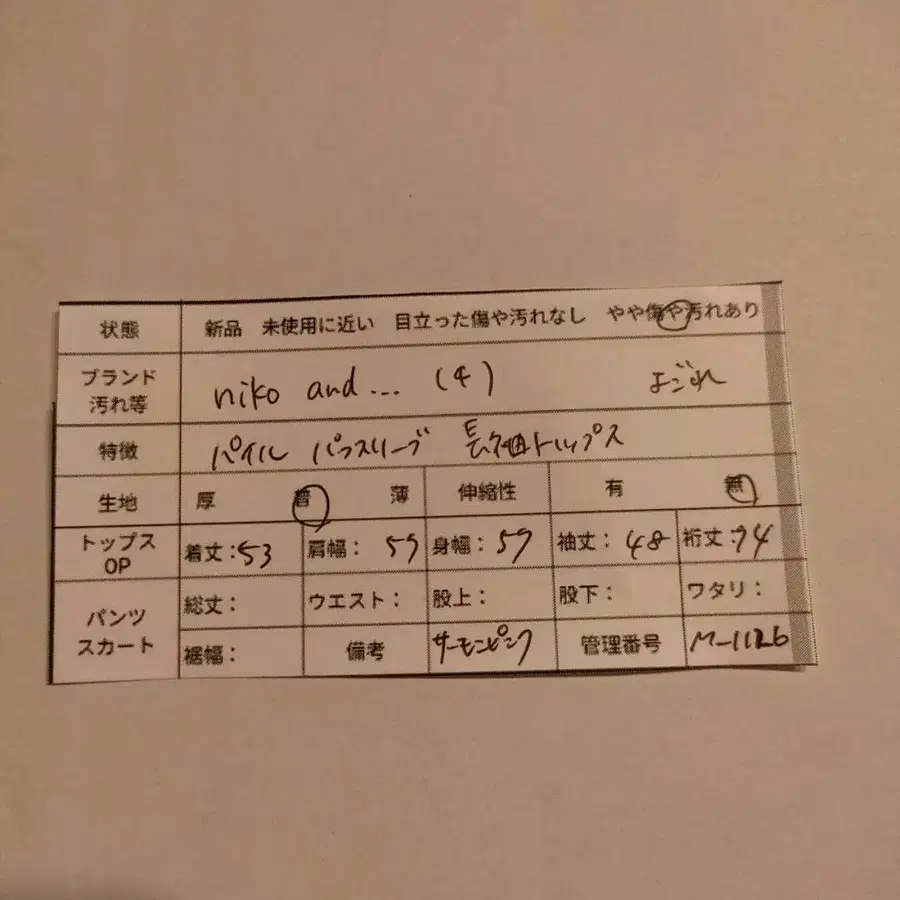 状態 新品 未使用に近い 目立った傷や汚れなし やや傷や汚れあり
ブランド niko and... (4) よごれ
汚れ等
特徴 パイル パフスリーブ 長袖トップス
生地 厚 普 薄 伸縮性 有 無
トップス 着丈:53 肩幅: 57 身幅: 57 袖丈: 48 裄丈:74
OP
パンツ 総丈: ウエスト: 股上: 股下: ワタリ:
スカート 裾幅: 備考 サーモンピンク 管理番号 M-1126